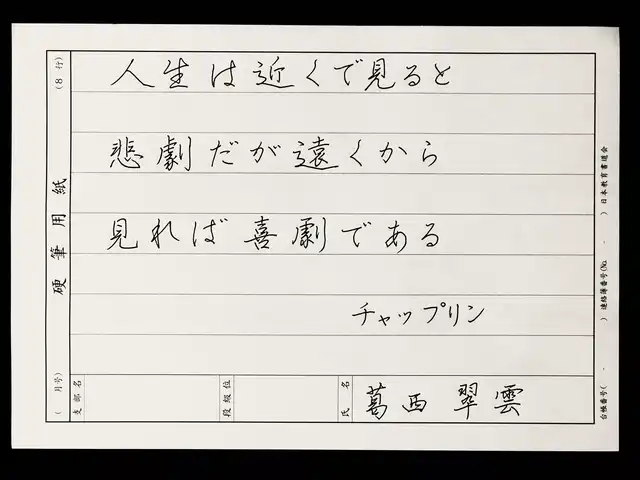 人生は近くで見ると
悲劇だが遠くから
見れば喜劇である
チャップリン
葛西 翠雲
氏名
段級位
支部名
(8行)
硬筆用紙
( 月号)
日本教育書道会
連絡簿番号(No. - )
台帳番号( - )